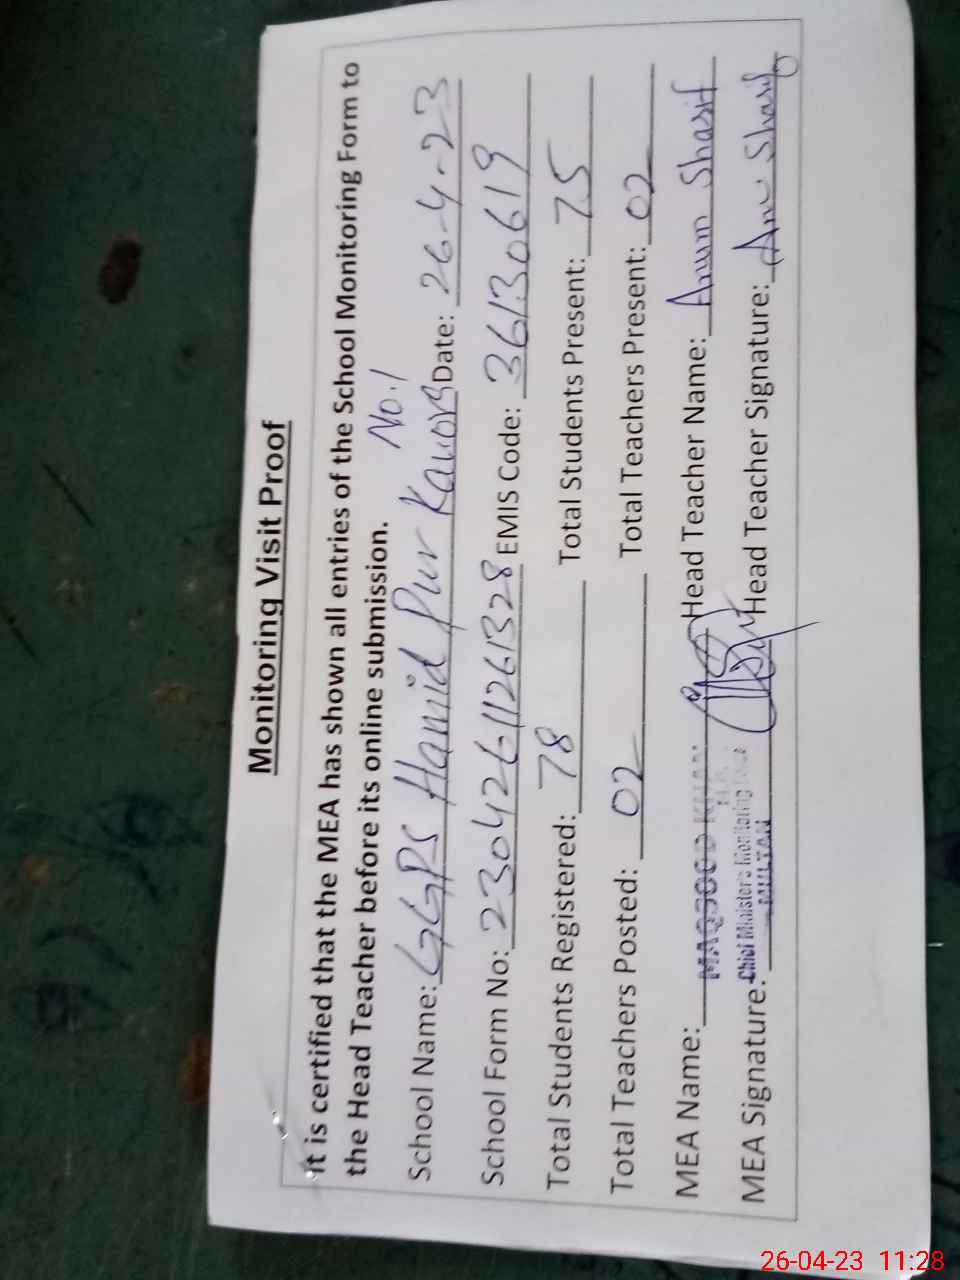 Monitoring Visit Proof
It is certified that the MEA has shown all entries of the School Monitoring Form to
the Head Teacher before its online submission.
No.1
School Name: GGPS Hamid Pur Date: 26-4-23
School Form No: 230426112613 28 EMIS Code: 36130619
Total Students Registered: 78 Total Students Present: 75
Total Teachers Posted: 02 Total Teachers Present: 02
MEA Name: MAQSOOD Head Teacher Name: Anum Sharif
Chief Minister's Monitoring
MEA Signature: MULTAN Head Teacher Signature: Anu Sharif
26-04-23 11:28